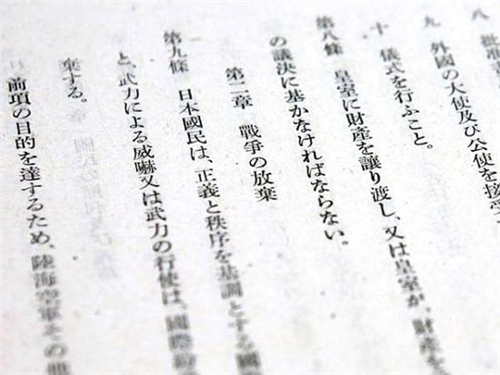 八
九 外國の大使及び公使を接受
十 儀式を行ふこと。
第八條 皇室に財產を讓り渡し、又は皇室が、財產を
の議決に基かなければならない。
第二章 戰爭の放棄
第九條 日本國民は、正義と秩序を基調とする國
と、武力による威嚇又は武力の行使は、國際紛
棄する。
前項の目的を達するため、陸海空軍その他